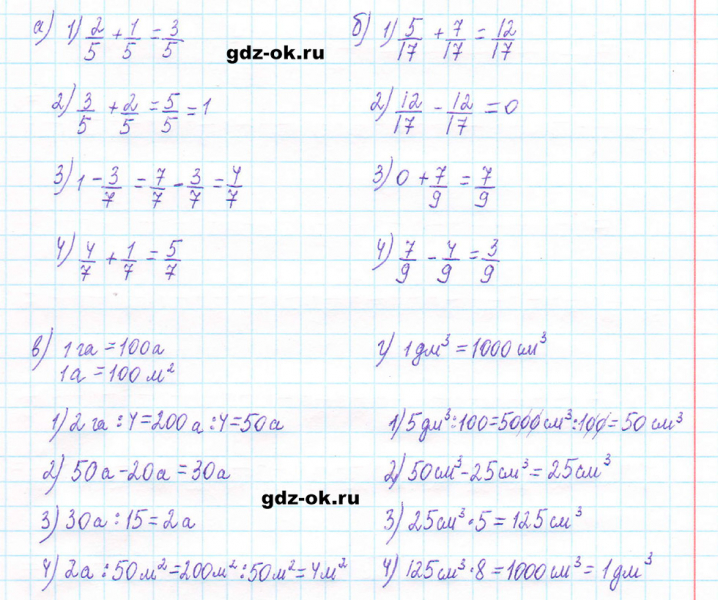 а) 1) 2/5 + 1/5 = 3/5
gdz-ok.ru
2) 3/5 + 2/5 = 5/5 = 1
3) 1 - 3/7 = 7/7 - 3/7 = 4/7
4) 4/7 + 1/7 = 5/7
б) 1) 5/17 + 7/17 = 12/17
2) 12/17 - 12/17 = 0
3) 0 + 7/9 = 7/9
4) 7/9 - 4/9 = 3/9
в) 1 га = 100 а
1а = 100 м²
1) 2 га : 4 = 200 а : 4 = 50 а
2) 50 а - 20 а = 30 а
gdz-ok.ru
3) 30 а : 15 = 2 а
4) 2 а : 50 м² = 200 м² : 50 м² = 4 м²
г) 1 дм³ = 1000 см³
1) 5 дм³ : 100 = 5000 см³ : 100 = 50 см³
2) 50 см³ - 25 см³ = 25 см³
3) 25 см³ · 5 = 125 см³
4) 125 см³ · 8 = 1000 см³ = 1 дм³